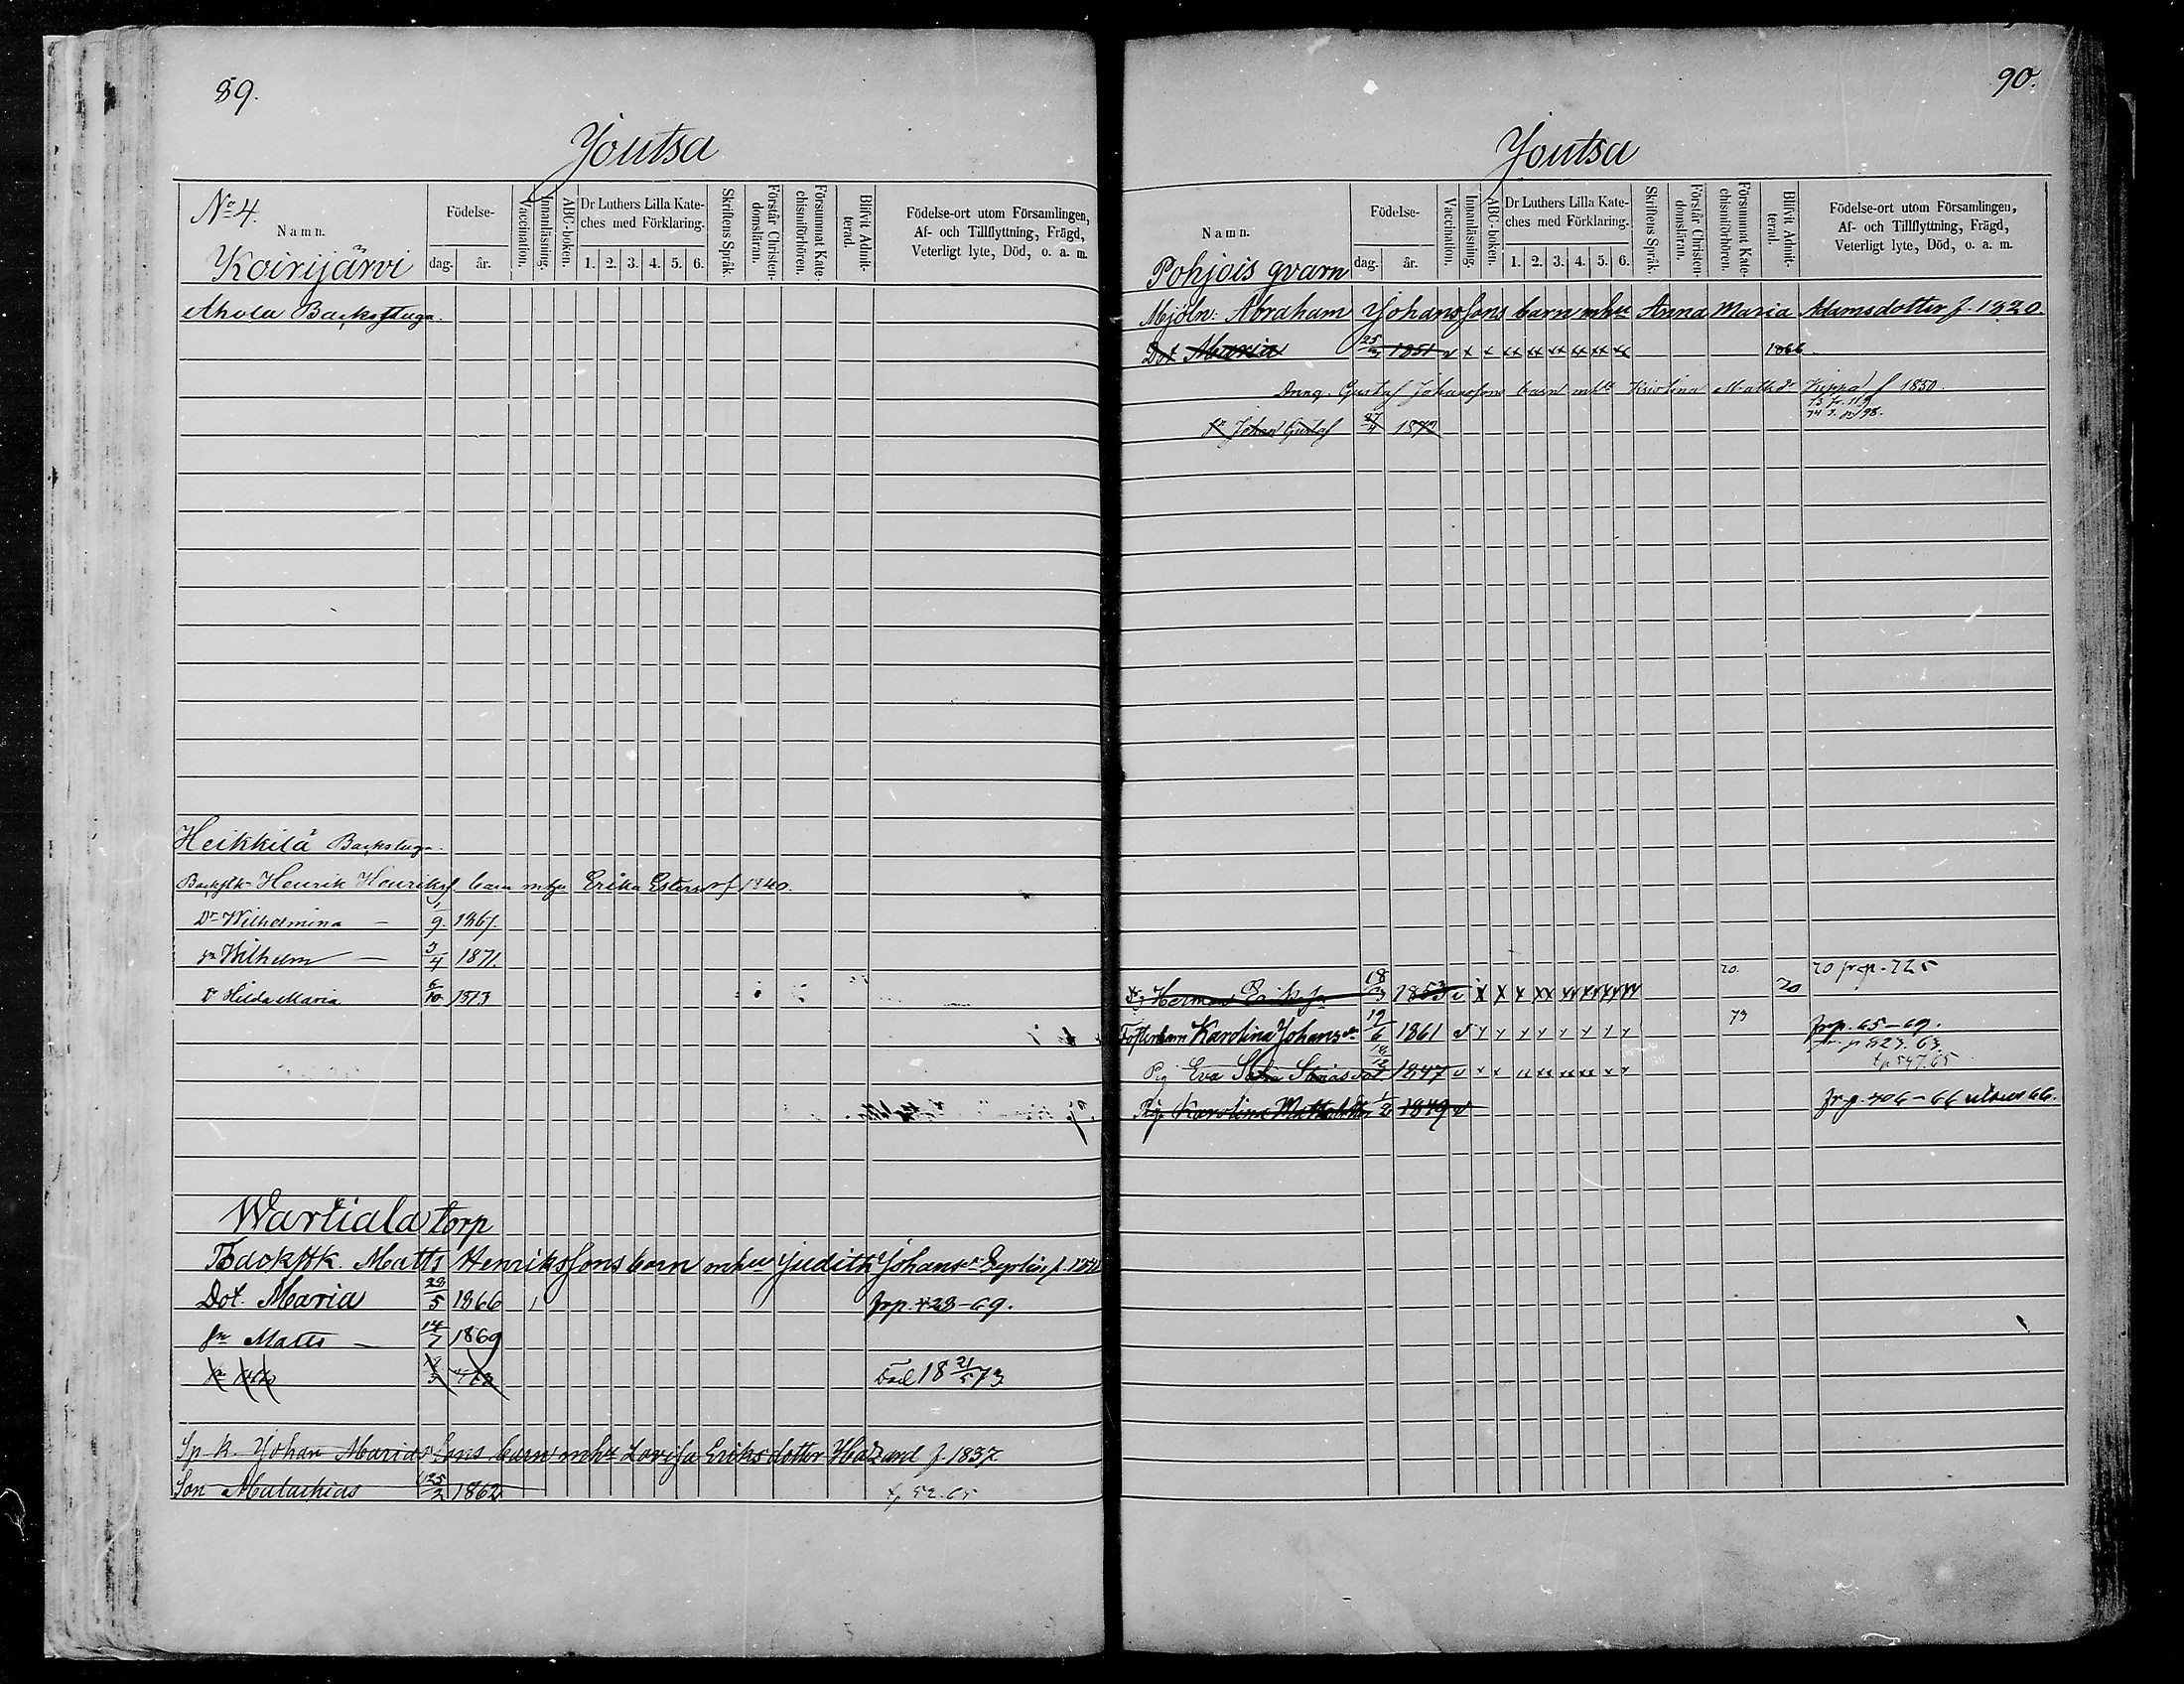 89.
Joutsa
No 4.
Namn.
Födelse-
dag. år.
Vaccination.
Innanläsning.
ABC-boken.
Dr Luthers Lilla Kate-
ches med Förklaring.
1. 2. 3. 4. 5. 6.
Skriftens Språk.
Förstår Christen-
domsläran.
Försummat Kate-
chismiförhören.
Blifvit Admit-
terad.
Födelse-ort utom Församlingen,
Af- och Tillflyttning, Frägd,
Veterligt lyte, Död, o. a. m.
Koirijärvi
Ahola Backstuga.
Heikkilä Backstuga.
Henrik Henrikss barn mhu Erika f 1840.
Dr Wilhelmina — 1/9 1867.
sn Wilhelm — 3/4 1871.
Dr Hilda Maria 6/10 1873
Wartiala torp
Backstk. Matts Henrikssons barn mhu Judith Johansdr
Dot. Maria 29/5 1866 frp. 428-69.
sn Matts — 14/7 1869
död 18 21/5 73
Sp. k. Johan barn mhu Lovisa Eriksdotter f. 1837
Son Malachias 25/2 1862 tp 52.65
90.
Joutsa
Namn.
Födelse-
dag. år.
Vaccination.
Innanläsning.
ABC-boken.
Dr Luthers Lilla Kate-
ches med Förklaring.
1. 2. 3. 4. 5. 6.
Skriftens Språk.
Förstår Christen-
domsläran.
Försummat Kate-
chismiförhören.
Blifvit Admit-
terad.
Födelse-ort utom Församlingen,
Af- och Tillflyttning, Frägd,
Veterligt lyte, Död, o. a. m.
Pohjois qvarn
Mjöln. Abraham Johanssons barn mhu Anna Maria Adamsdotter f. 1820.
Dot Maria 25/3 1851 v x x xx xx xx xx xx xx 1866.
Dräng. Gustaf Johanssons barn mhu Kristina Mattsdr f 1850.
73 fr. 119
74 t. p. 198.
sn Johan Gustaf 27/4 1872
20. 20 fr p. 725
Herman Eriksson 18/3 1853 v x x x xx xx xx xx xx 20
Fosterbarn Karolina Johansdr 12/6 1861 v 73 frp. 65-69.
fr. p 823. 63.
Pig Eva Sofia 1847 v tp 547.65
Pig. Karolina Mattsdotter 1/2 1849 v fr p. 406-66